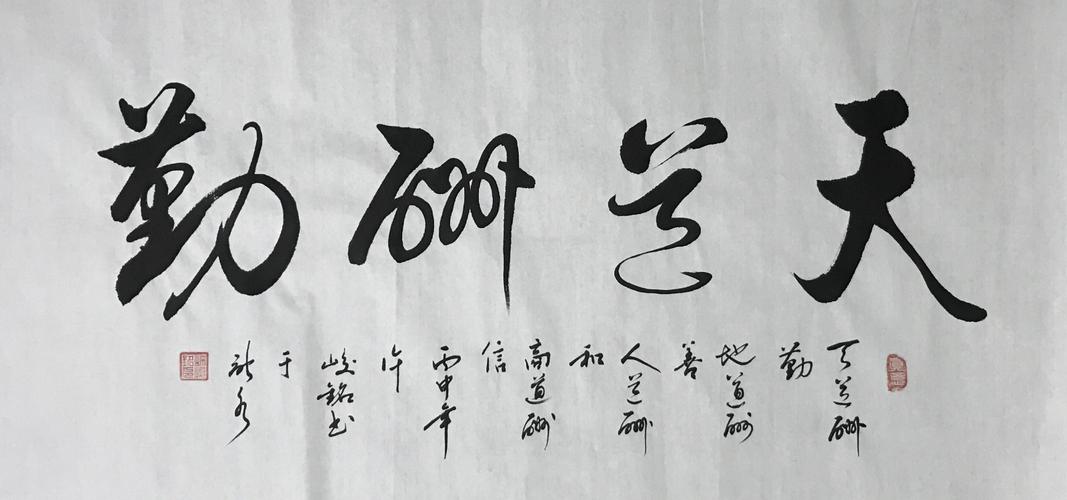 天道酬勤
天道酬
勤
地道酬
善
人道酬
和
商道酬
信
丙申年
许
峻铭书
于